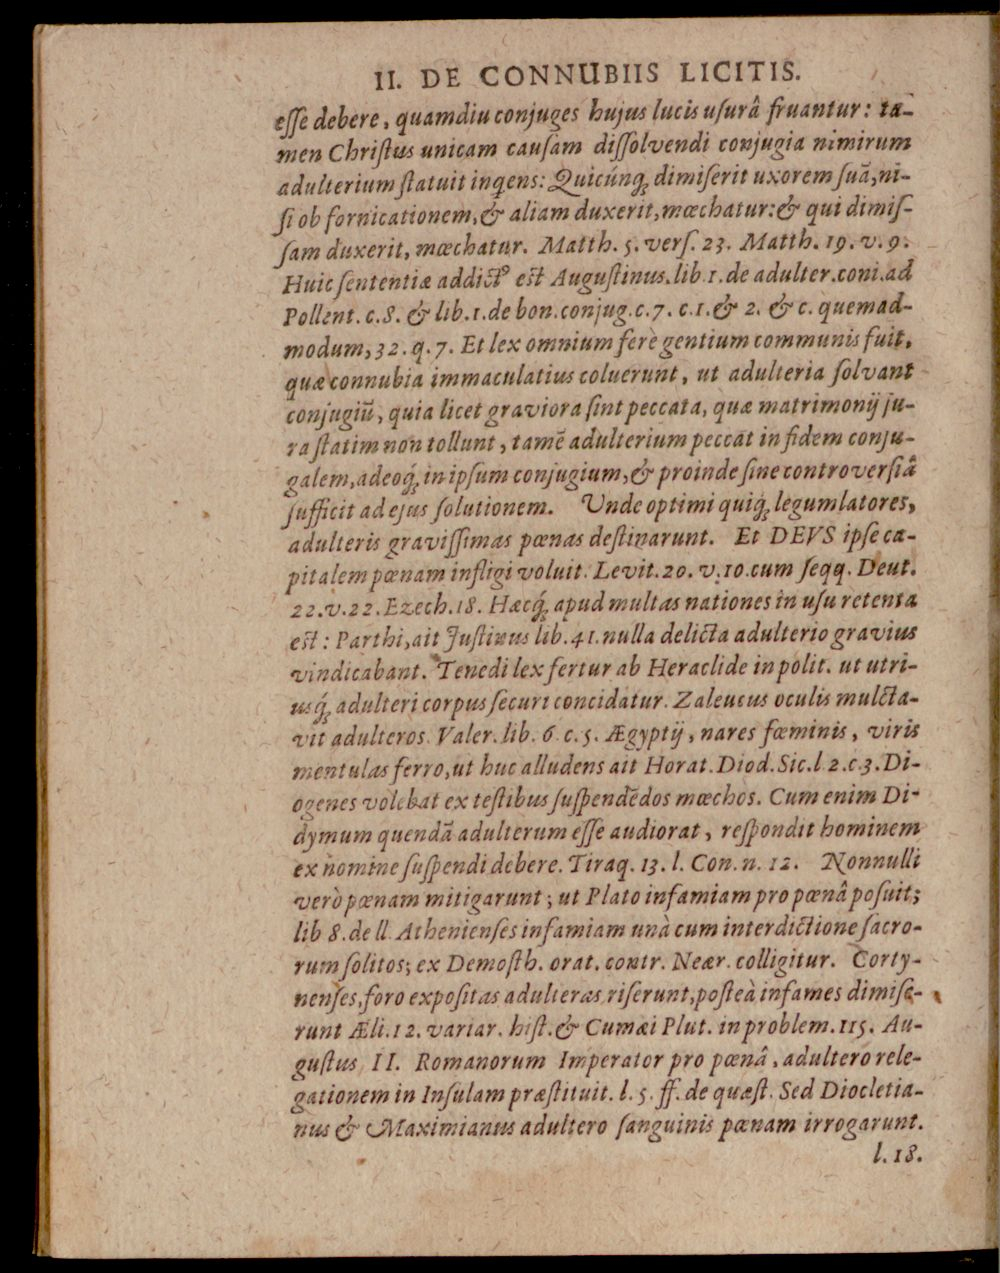 II. DE CONNUBIIS LICITIS.
esse debere, quamdiu conjuges hujus lucis usurâ fruantur: ta-
men Christus unicam causam dissolvendi conjugia nimirum
adulterium statuit inqens: Quicúnq; dimiserit uxorem suã, ni-
si ob fornicationem, & aliam duxerit, mœchatur: & qui dimis-
sam duxerit, mœchatur. Matth. 5. vers. 23. Matth. 19. v. 9.
Huic sententiæ addictꝰ est Augustinus. lib. 1. de adulter. coni. ad
Pollent. c. 8. & lib. 1. de bon. conjug. c. 7. c. 1. & 2. & c. quemad-
modum, 32. q. 7. Et lex omnium ferè gentium communis fuit,
quæ connubia immaculatius coluerunt, ut adulteria solvant
conjugiũ, quia licet graviora sint peccata, quæ matrimonij ju-
ra statim non tollunt, tamẽ adulterium peccat in fidem conju-
galem, adeoq́; in ipsum conjugium, & proinde sine controversiâ
sufficit ad ejus solutionem. Unde optimi quiq́; legumlatores,
adulteris gravissimas pœnas destinarunt. Et DEVS ipse ca-
pitalem pœnam infligi voluit. Levit. 20. v. 10. cum seqq. Deut.
22. v. 22. Ezech. 18. Hæcq́; apud multas nationes in usu retenta
est: Parthi, ait Justinus lib. 41. nulla delicta adulterio gravius
vindicabant. Tenedi lex fertur ab Heraclide in polit. ut utri-
usq́; adulteri corpus securi concidatur. Zaleucus oculis mulcta-
vit adulteros. Valer. lib. 6. c. 5. Ægyptij, nares fœminis, viris
mentulas ferro, ut huc alludens ait Horat. Diod. Sic. l. 2. c. 3. Di-
ogenes volebat ex testibus suspendẽdos mœchos. Cum enim Di-
dymum quendã adulterum esse audiorat, respondit hominem
ex nomine suspendi debere. Tiraq. 13. l. Con. n. 12. Nonnulli
verò pœnam mitigarunt; ut Plato infamiam pro pœnâ posuit;
lib 8. de ll. Athenienses infamiam unà cum interdictione sacro-
rum solitos; ex Demosth. orat. contr. Neær. colligitur. Corty-
nenses, foro expositas adulteras riserunt, posteà infames dimise-
runt Æli. 12. variar. hist. & Cumæi Plut. in problem. 115. Au-
gustus II. Romanorum Imperator pro pœnâ, adultero rele-
gationem in Insulam præstituit. l. 5. ff. de quæst. Sed Diocletia-
nus & Maximianus adultero sanguinis pœnam irrogarunt.
l. 18.